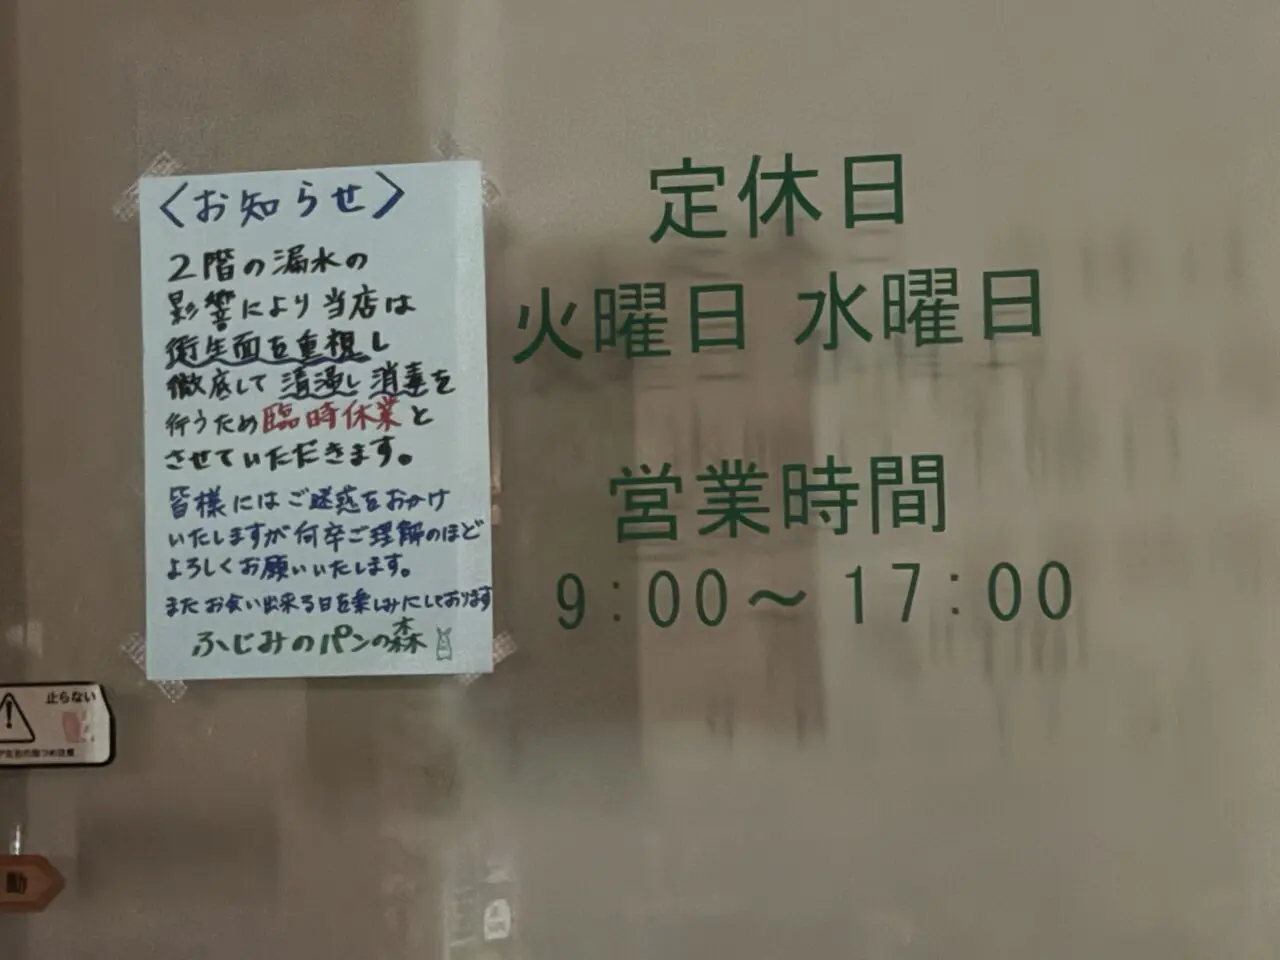 〈お知らせ〉
2階の漏水の
影響により当店は
衛生面を重視し
徹底して清潔し消毒を
行うため臨時休業と
させていただきます。
皆様にはご迷惑をおかけ
いたしますが何卒ご理解のほど
よろしくお願いいたします。
またお会い出来る日を楽しみにしております
ふじみのパンの森
定休日
火曜日 水曜日
営業時間
9:00〜17:00
止らない
動